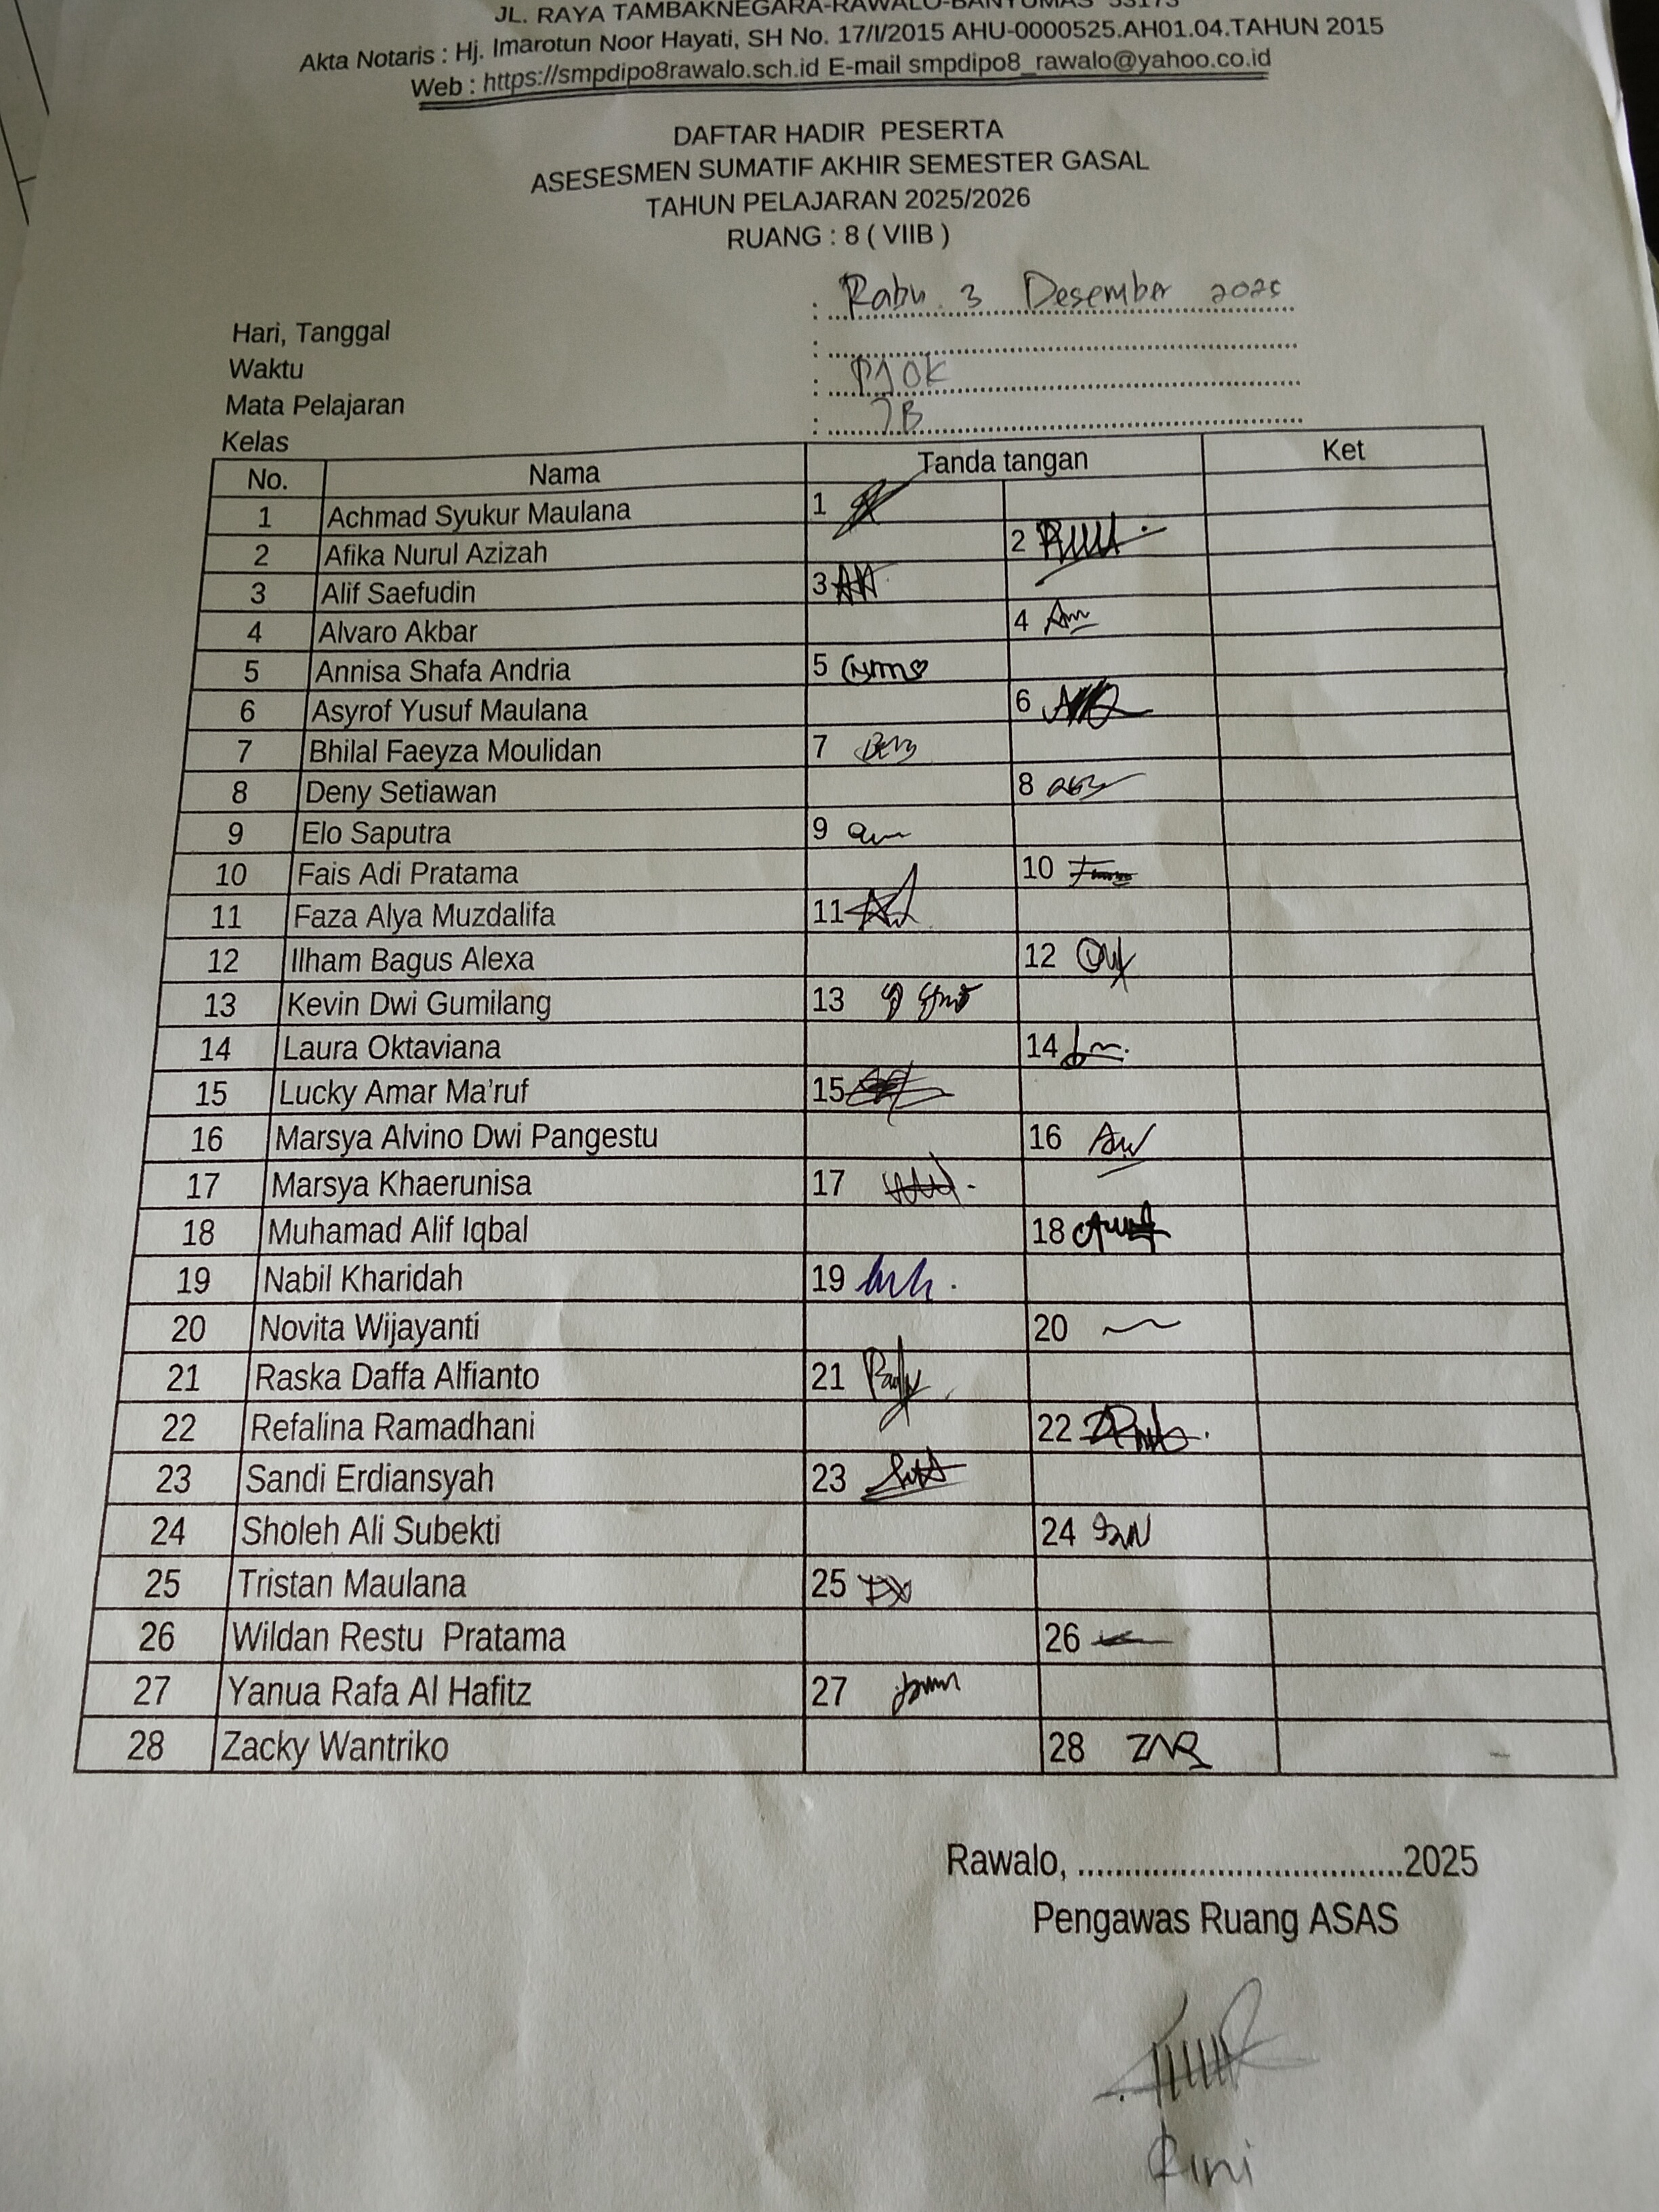 JL. RAYA TAMBAKNEGARA-RAWALO-BANYUMAS 53173
Akta Notaris : Hj. Imarotun Noor Hayati, SH No. 17/I/2015 AHU-0000525.AH01.04.TAHUN 2015
Web : https://smpdipo8rawalo.sch.id E-mail smpdipo8_rawalo@yahoo.co.id
DAFTAR HADIR PESERTA
ASESESMEN SUMATIF AKHIR SEMESTER GASAL
TAHUN PELAJARAN 2025/2026
RUANG : 8 ( VIIB )
Hari, Tanggal : Rabu 3 Desember 2025
Waktu :
Mata Pelajaran : PJOK
Kelas : 7B
No. Nama Tanda tangan Ket
1 Achmad Syukur Maulana 1
2 Afika Nurul Azizah 2
3 Alif Saefudin 3
4 Alvaro Akbar 4
5 Annisa Shafa Andria 5
6 Asyrof Yusuf Maulana 6
7 Bhilal Faeyza Moulidan 7
8 Deny Setiawan 8
9 Elo Saputra 9
10 Fais Adi Pratama 10
11 Faza Alya Muzdalifa 11
12 Ilham Bagus Alexa 12
13 Kevin Dwi Gumilang 13
14 Laura Oktaviana 14
15 Lucky Amar Ma'ruf 15
16 Marsya Alvino Dwi Pangestu 16
17 Marsya Khaerunisa 17
18 Muhamad Alif Iqbal 18
19 Nabil Kharidah 19
20 Novita Wijayanti 20
21 Raska Daffa Alfianto 21
22 Refalina Ramadhani 22
23 Sandi Erdiansyah 23
24 Sholeh Ali Subekti 24
25 Tristan Maulana 25
26 Wildan Restu Pratama 26
27 Yanua Rafa Al Hafitz 27
28 Zacky Wantriko 28
Rawalo, ....................................2025
Pengawas Ruang ASAS
Rini